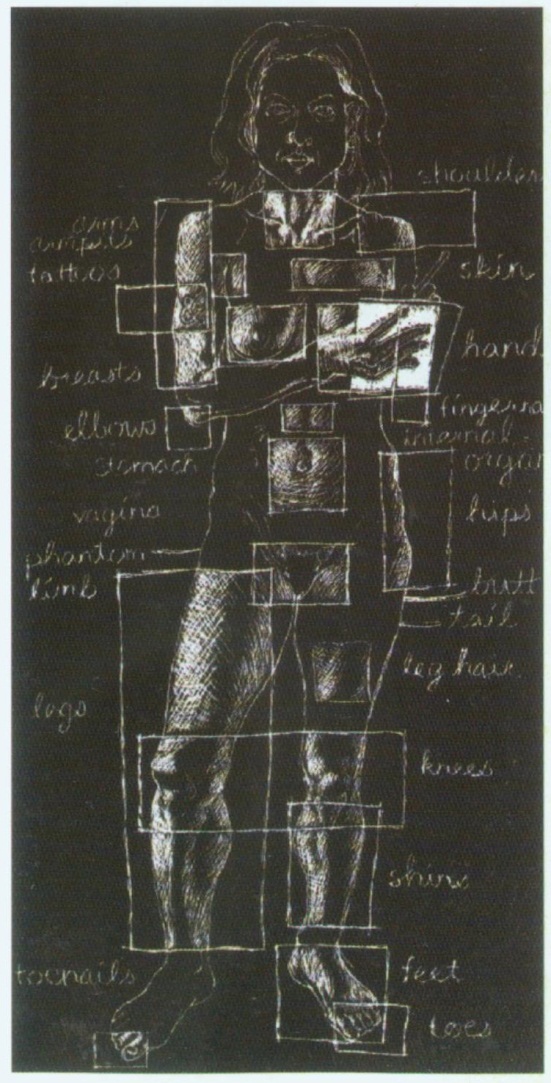 shoulders
arms
armpits
tattoos
skin
hand
breasts
elbows
internal
organ
stomach
hips
vagina
phantom
limb
butt
tail
leg hair
legs
knees
shins
toenails
feet
toes